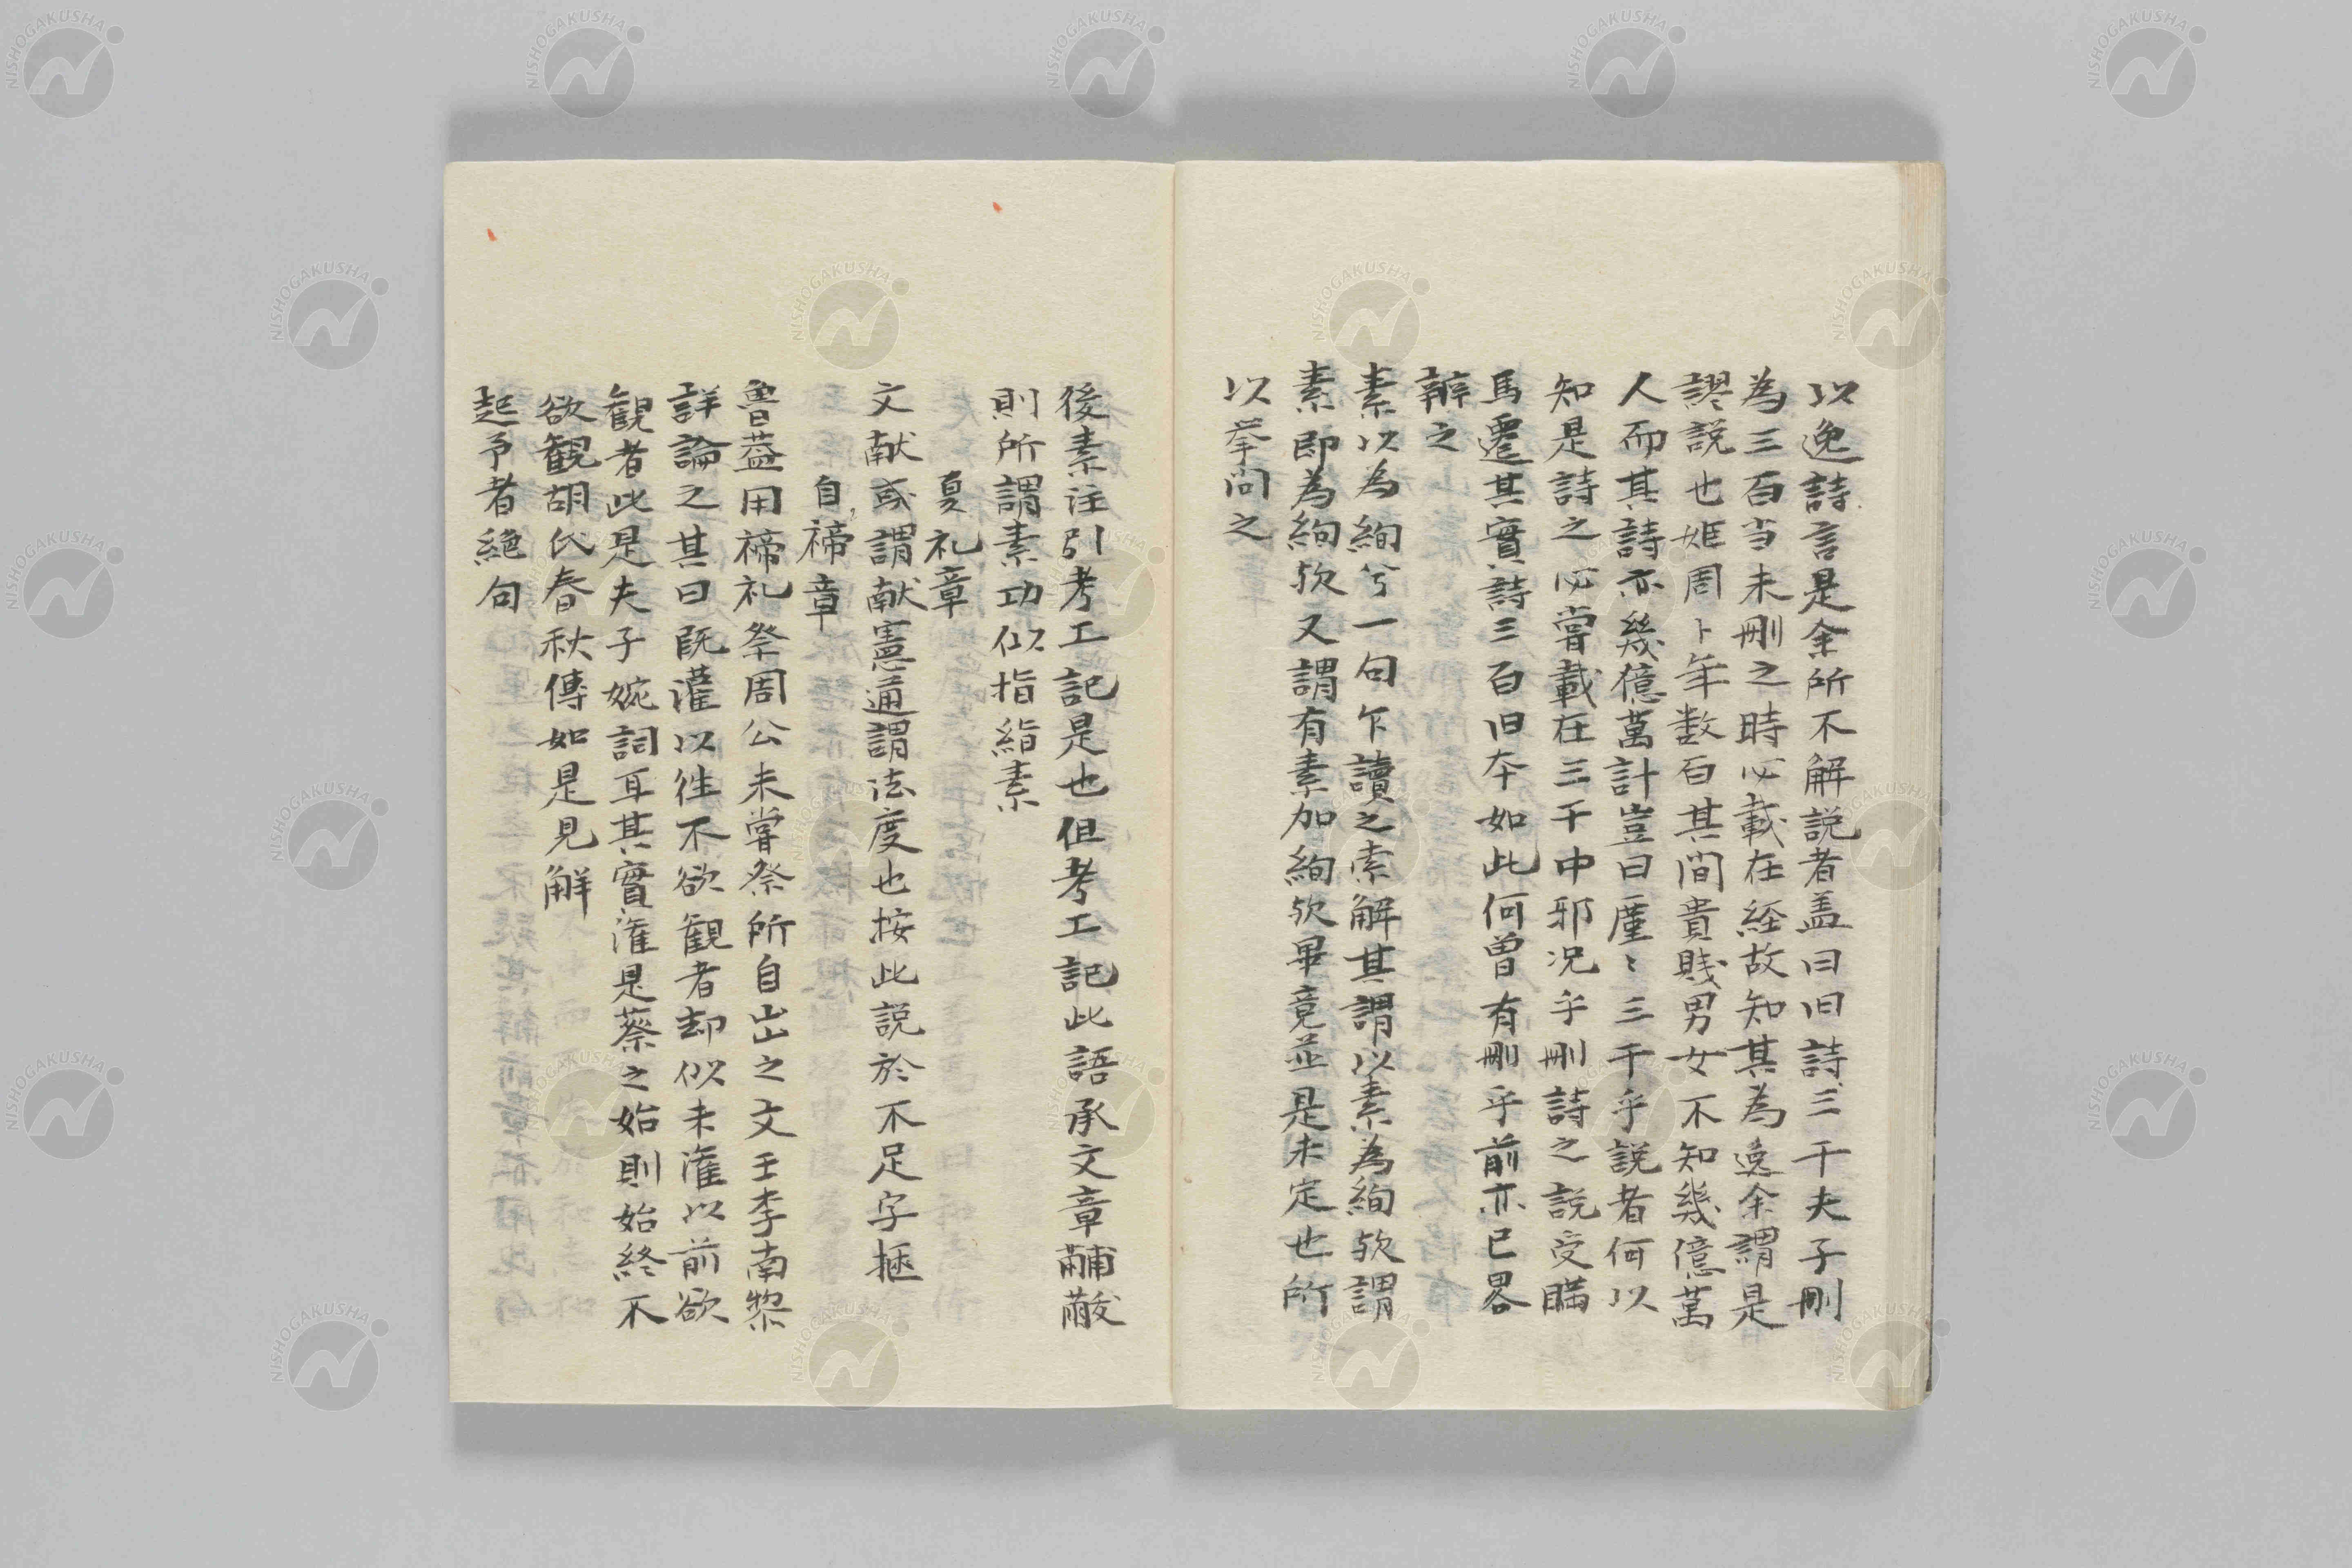 以逸詩言是余所不解説者盖曰旧詩三千夫子刪
為三百当未刪之時必載在経故知其為逸余謂是
謬説也姫周卜年数百其間貴賤男女不知幾億萬
人而其詩亦幾億萬計豈曰廑〻三千乎説者何以
知是詩之必嘗載在三千中邪况乎刪詩之説受瞞
馬遷其實詩三百旧本如此何曽有刪乎前亦已畧
辨之
素以為絢兮一句乍讀之索解其謂以素為絢欤謂
素即為絢欤又謂有素加絢欤畢竟並是未定也所
以挙問之
後素注引考工記是也但考工記此語承文章黼黻
則所謂素功似指絺素
夏礼章
文献或謂献憲通謂法度也按此説於不足字摇
自禘章
魯益用禘礼祭周公未嘗祭所自出之文王李南黎
詳論之其曰既灌以徃不欲観者却似未灌以前欲
観者此是夫子婉詞耳其實灌是蔡之始則始終不
欲観胡氏春秋傳如是見解
起予者絶句
NISHOGAKUSHA